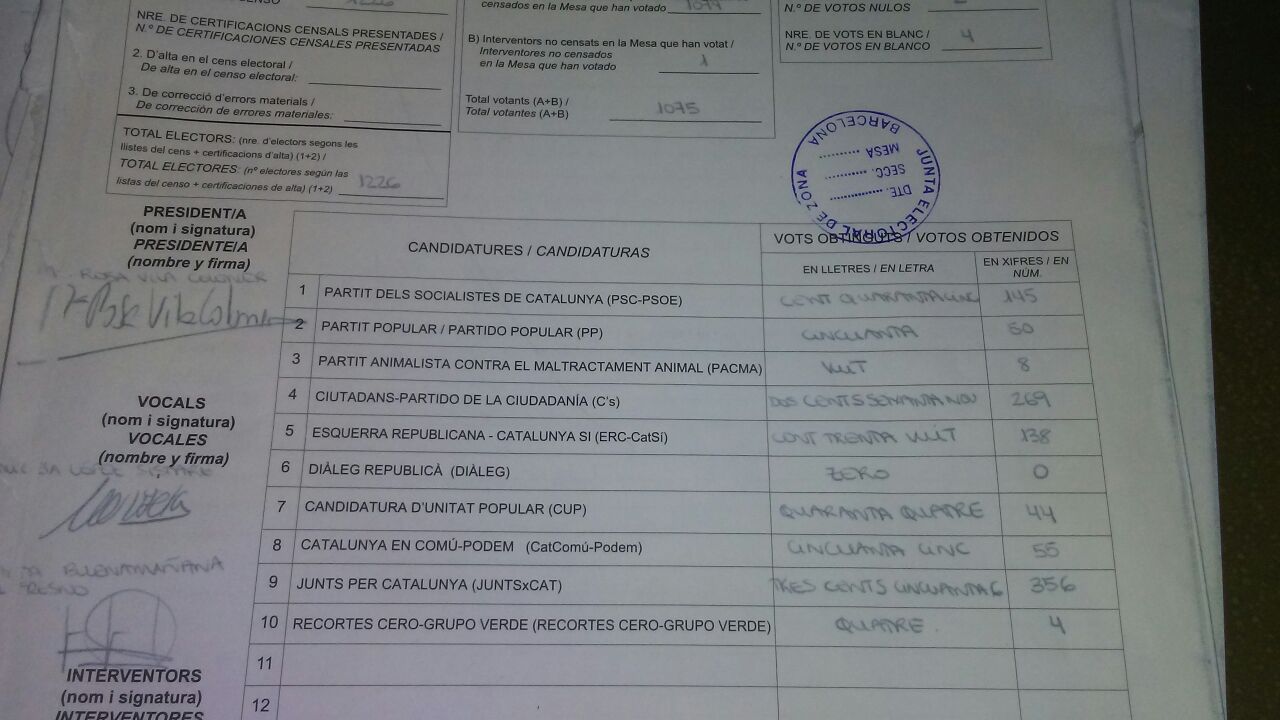 CENSO 1226
censados en la Mesa que han votado 1074
N.º DE VOTOS NULOS
NRE. DE CERTIFICACIONS CENSALS PRESENTADES /
N.º DE CERTIFICACIONES CENSALES PRESENTADAS
2. D'alta en el cens electoral /
De alta en el censo electoral:
3. De correcció d'errors materials /
De corrección de errores materiales:
TOTAL ELECTORS: (nre. d'electors segons les
llistes del cens + certificacions d'alta) (1+2) /
TOTAL ELECTORES: (nº electores según las
listas del censo + certificaciones de alta) (1+2) 1226
B) Interventors no censats en la Mesa que han votat /
Interventores no censados
en la Mesa que han votado 1
Total votants (A+B) /
Total votantes (A+B) 1075
NRE. DE VOTS EN BLANC /
N.º DE VOTOS EN BLANCO 4
JUNTA ELECTORAL DE ZONA
BARCELONA
DTE.
SECC.
MESA
PRESIDENT/A
(nom i signatura)
PRESIDENTE/A
(nombre y firma)
VOCALS
(nom i signatura)
VOCALES
(nombre y firma)
BUENAMAÑANA
INTERVENTORS
(nom i signatura)
INTERVENTORES
CANDIDATURES / CANDIDATURAS
VOTS OBTINGUTS / VOTOS OBTENIDOS
EN LLETRES / EN LETRA
EN XIFRES / EN
NÚM.
1 PARTIT DELS SOCIALISTES DE CATALUNYA (PSC-PSOE) CENT QUARANTA CINC 145
2 PARTIT POPULAR / PARTIDO POPULAR (PP) CINCUANTA 50
3 PARTIT ANIMALISTA CONTRA EL MALTRACTAMENT ANIMAL (PACMA) VUIT 8
4 CIUTADANS-PARTIDO DE LA CIUDADANÍA (C's) DOS CENTS SEIXANTA NOU 269
5 ESQUERRA REPUBLICANA - CATALUNYA SI (ERC-CatSí) CENT TRENTA VUIT 138
6 DIÀLEG REPUBLICÀ (DIÀLEG) ZERO 0
7 CANDIDATURA D'UNITAT POPULAR (CUP) QUARANTA QUATRE 44
8 CATALUNYA EN COMÚ-PODEM (CatComú-Podem) CINCUANTA CINC 55
9 JUNTS PER CATALUNYA (JUNTSxCAT) TRES CENTS CINCUANTA 6 356
10 RECORTES CERO-GRUPO VERDE (RECORTES CERO-GRUPO VERDE) QUATRE 4
11
12